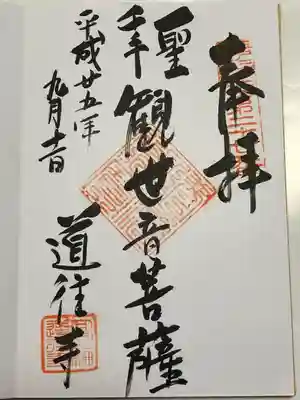 奉拝
聖
千手
観世音菩薩
平成廿五年
九月
道往寺